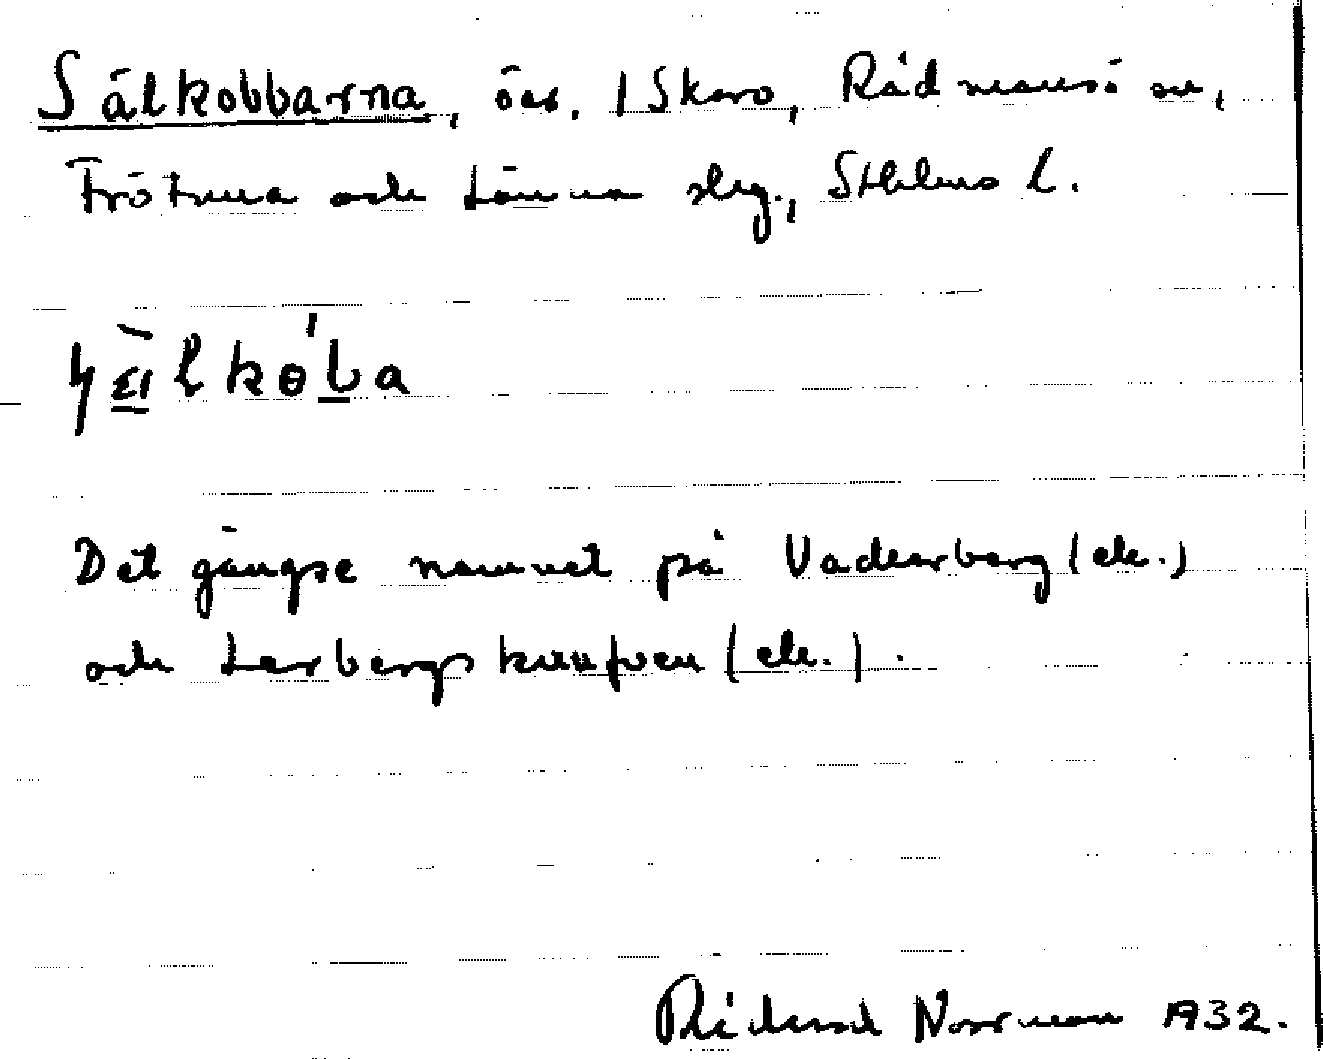 Sälkobbarna, öar. I Skovo, Rådmansö sn,
Frötuna och Länna slg., Sthlms l.
sälkoba
Det gängse namnet på Vadearberg (ek.)
och Larbergskunfven (ek.).
Rickard Norrman 1932.